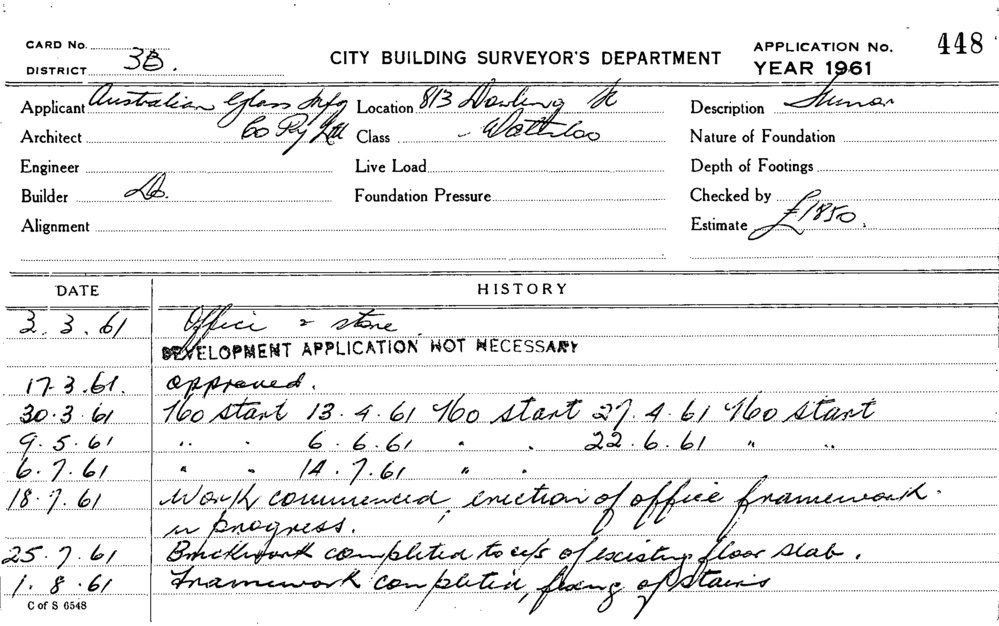 CARD No.
DISTRICT 3B.
CITY BUILDING SURVEYOR'S DEPARTMENT
APPLICATION No. 448
YEAR 1961
Applicant Australian Glass Mfg Location 813 Dowling St Description
Architect Co Pty Ltd Class Waterloo Nature of Foundation
Engineer Live Load Depth of Footings
Builder Do. Foundation Pressure Checked by
Alignment Estimate £1850.
DATE HISTORY
3.3.61 Office & store.
DEVELOPMENT APPLICATION NOT NECESSARY
17.3.61. approved.
30.3.61 No start 13.4.61 No start 27.4.61 No start
9.5.61 " " 6.6.61 " " 22.6.61 " "
6.7.61 " " 14.7.61 " "
18.7.61 Work commenced, erection of office framework
in progress.
25.7.61 Brickwork completed to u/s of existing floor slab.
1.8.61 Framework completed, fixing of stairs
C of S 6548